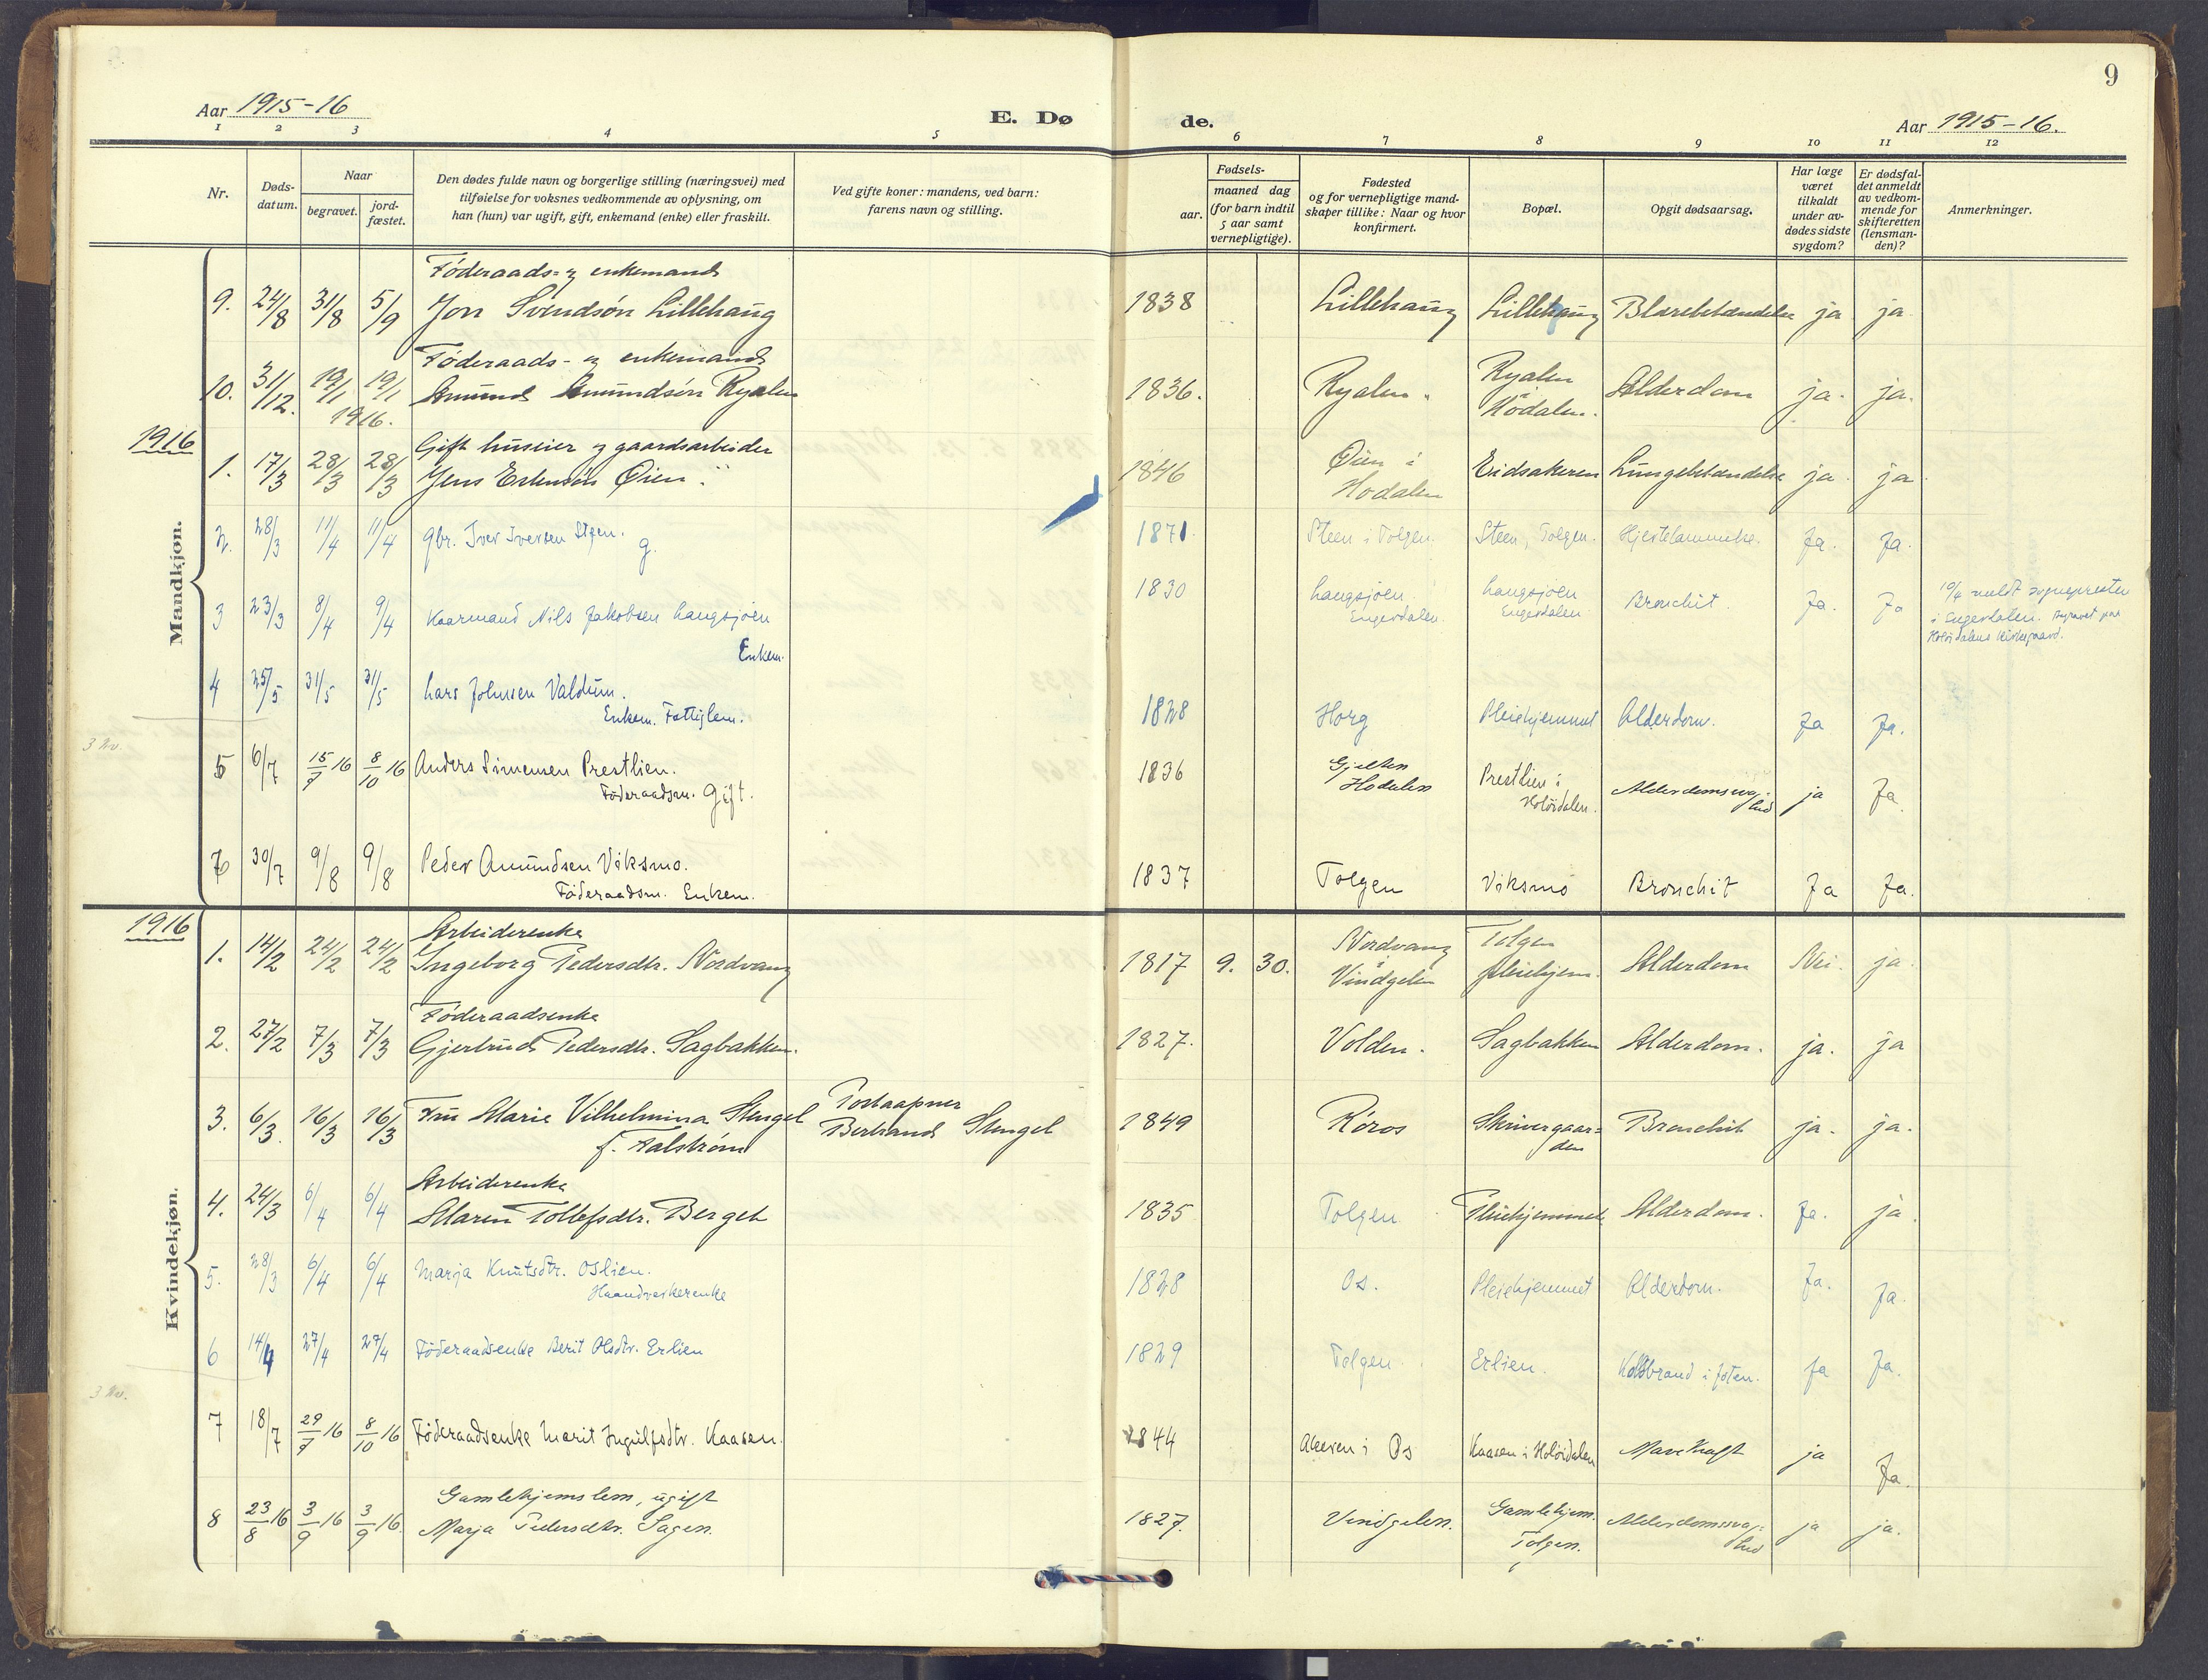 9
Aar 1915-16
E. Dø
de.
Aar 1915-16.
1 2 3 4 5 6 7 8 9 10 11 12
Nr.
Døds-
datum.
Naar
begravet.
jord-
fæstet.
Den dødes fulde navn og borgerlige stilling (næringsvei) med
tilføielse for voksnes vedkommende av oplysning, om
han (hun) var ugift, gift, enkemand (enke) eller fraskilt.
Ved gifte koner: mandens, ved barn:
farens navn og stilling.
Fødsels-
aar.
maaned dag
(for barn indtil
5 aar samt
vernepligtige).
Fødested
og for vernepligtige mand-
skaper tillike: Naar og hvor
konfirmert.
Bopæl.
Opgit dødsaarsag.
Har læge
været
tilkaldt
under av-
dødes sidste
sygdom?
Er dødsfal-
det anmeldt
av vedkom-
mende for
skifteretten
(lensman-
den)?
Anmerkninger.
Mandkjøn.
Føderaads- og enkemand
9. 24/8 31/8 5/9 Jon Svendsøn Lillehaug 1838 Lillehaug Lillehaug Blærebetændelse ja ja
Føderaads- og enkemand
10. 31/12. 19/1 19/1 Amund Amundsøn Ryalen 1836. Ryalen. Ryalen Hodalen. Alderdom ja. ja.
1916.
1916
Gift huseier og gaardsarbeider
1. 17/3 28/3 28/3 Jens Estensøn Øien. 1846 Øien i Hodalen Eidsakeren Lungebetændelse ja. ja
2. 28/3 11/4 11/4 gbr. Iver Iversen Steen. g. 1871 Steen i Tolgen. Steen, Tolgen. Hjertelammelse. Ja. Ja.
3 23/3 8/4 9/4 Kaarmand Nils Jakobsen Langsjøen 1830 Langsjøen Engerdalen. Langsjøen Engerdalen Bronchit. Ja. Ja 10/4 meldt sognepresten
i Engerdalen. Begravet paa
Holøidalens kirkegaard.
Enkem.
4 25/5 31/5 31/5 Lars Johnsen Valdum. 1828 Horg Pleiehjemmet Alderdom. Ja Ja.
Enkem. Fattiglem.
3 Nv.
5 6/7 15/7 16 8/10 16 Anders Simensen Prestlien. 1836 Gjelten Hodalen Prestlien i Holøidalen. Alderdomssvag-hed ja Ja
Føderaadsm. Gift.
6 30/7 9/8 9/8 Peder Amundsen Viksmo. 1837 Tolgen Viksmo Bronchit Ja Ja.
Føderaadsm. Enkem.
Kvindekjøn.
1916
Arbeiderenke
1. 14/2 24/2 24/2 Ingeborg Pedersdtr. Nordvang 1817 9. 30. Nordvang i Vindgelen Tolgen pleiehjem. Alderdom Nei. ja.
Føderaadsenke
2. 27/2 7/3 7/3 Gjertrud Pedersdtr. Sagbakken. 1827. Volden. Sagbakken Alderdom. ja. ja
3. 6/3. 16/3 16/3 Fru Marie Vilhelmina Stengel Postaapner Bertrand Stengel 1849 Røros Skrivergaar-den Bronchit ja. ja.
f. Aalstrøm
Arbeiderenke
4. 24/3 6/4 6/4 Maren Tollefsdtr. Berget 1835 Tolgen Pleiehjemmet Alderdom. Ja. ja
5. 28/3 6/4 6/4 Marja Knutsdtr. Oslien. 1828 Os. Pleiehjemmet Alderdom. Ja. Ja.
Haandverkerenke
6 14/4 27/4 27/4 Føderaadsenke Berit Olsdtr. Erlien 1829 Tolgen. Erlien. Koldbrand i foten. Ja Ja.
3 Nv.
7 18/7 29/7 16 8/10 16 Føderaadsenke Marit Ingulfsdtr. Kaasen. 1844 i Os Kaasen i Holøidalen Mavekræft ja Ja.
Gamlehjemslem, ugift
8 23/8 16 3/9 16 3/9 16. Marja Pedersdtr. Sagen. 1827. Vindgelen. Gamlehjem. Tolgen. Alderdomssvag-hed ja ja.